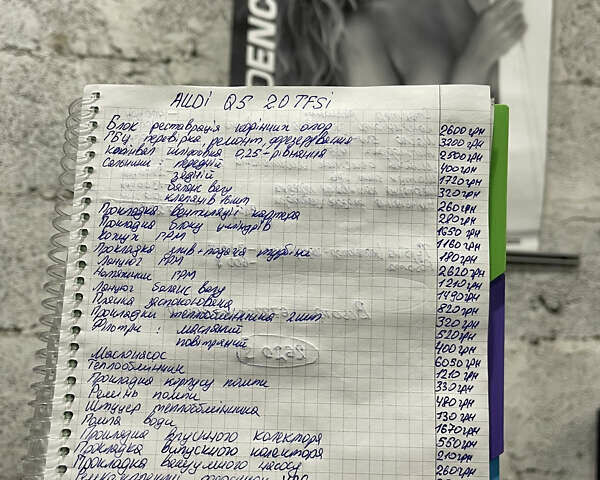 DENC
AUDI Q5 2.0 TFSi
Блок реставрація корінних опор 2600 грн
ГБЦ перевірка, ремонт, дефектування 3200 грн
Колінвал шліфовка 0,25 - рівняння 2500 грн
Сальники: передній 400 грн
задній 1720 грн
баланс валу 320 грн
клапанів 16шт 260 грн
Прокладка вентиляції картера 290 грн
Прокладка блоку циліндрів 1650 грн
Кожух ГРМ 1160 грн
Прокладка злив + подача турбіна 180 грн
Ланцюг ГРМ 2620 грн
Натяжник ГРМ 1210 грн
Ланцюг баланс валу 1490 грн
Планка заспокоювача 820 грн
Прокладки теплообмінника 2шт 320 грн
Фільтри: масляний 520 грн
повітряний 400 грн
Маслонасос 6050 грн
Теплообмінник 1210 грн
Прокладка корпусу помпи 330 грн
Ремінь помпи 480 грн
Штуцер теплообмінника 130 грн
Помпа води 1670 грн
Прокладка впускного колектора 550 грн
Прокладка випускного колектора 210 грн
Прокладка вакуумного насосу 260 грн